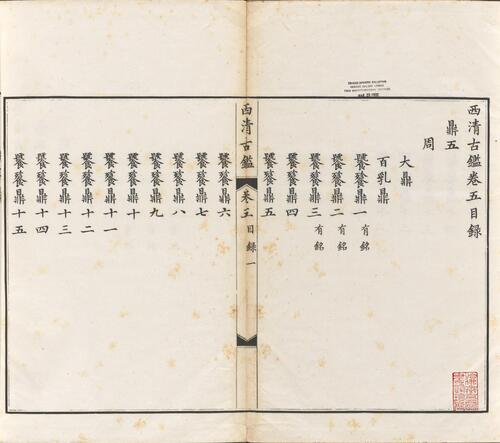 西清古鑑卷五目錄
鼎五
周
大鼎
百乳鼎
饕餮鼎一 有銘
饕餮鼎二 有銘
饕餮鼎三 有銘
饕餮鼎四
饕餮鼎五
西清古鑑 卷五目錄 一
饕餮鼎六
饕餮鼎七
饕餮鼎八
饕餮鼎九
饕餮鼎十
饕餮鼎十一
饕餮鼎十二
饕餮鼎十三
饕餮鼎十四
饕餮鼎十五